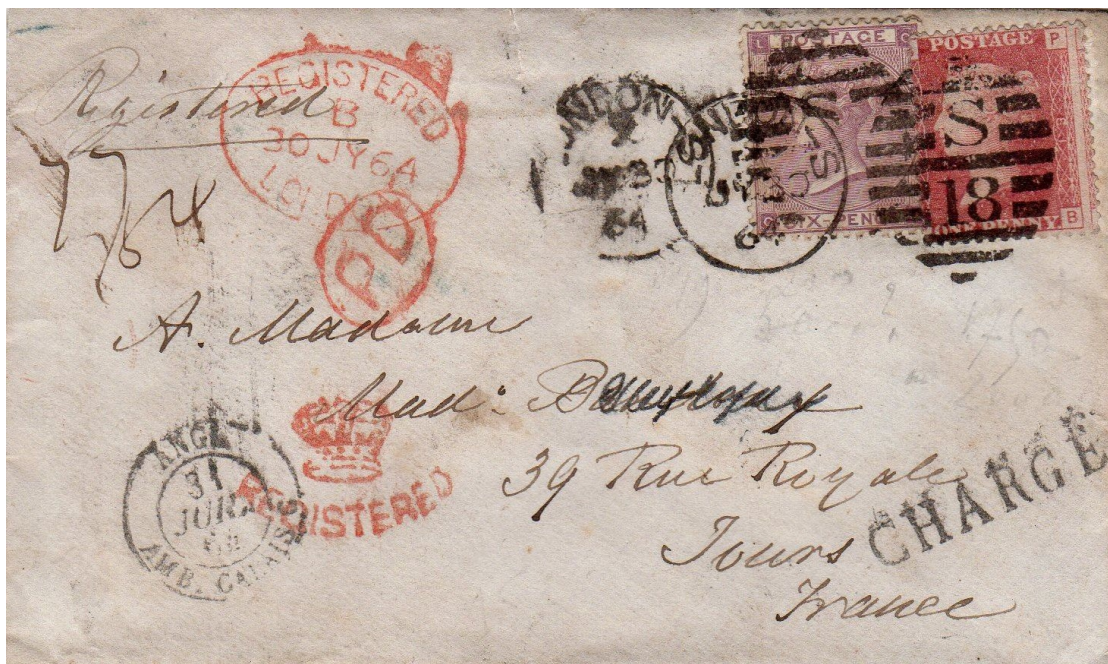 Registered
REGISTERED
B
30 JY 6A
LONDON
PD
LONDON-S
64
POSTAGE
L C
SIX-PENCE
POSTAGE P
S
18
ONE PENNY B
A. Madame
Mad:
39 Rue Royale
Tours
France
REGISTERED
ANGL.
31
JUIL.
64
AMB. CALAIS
CHARGE